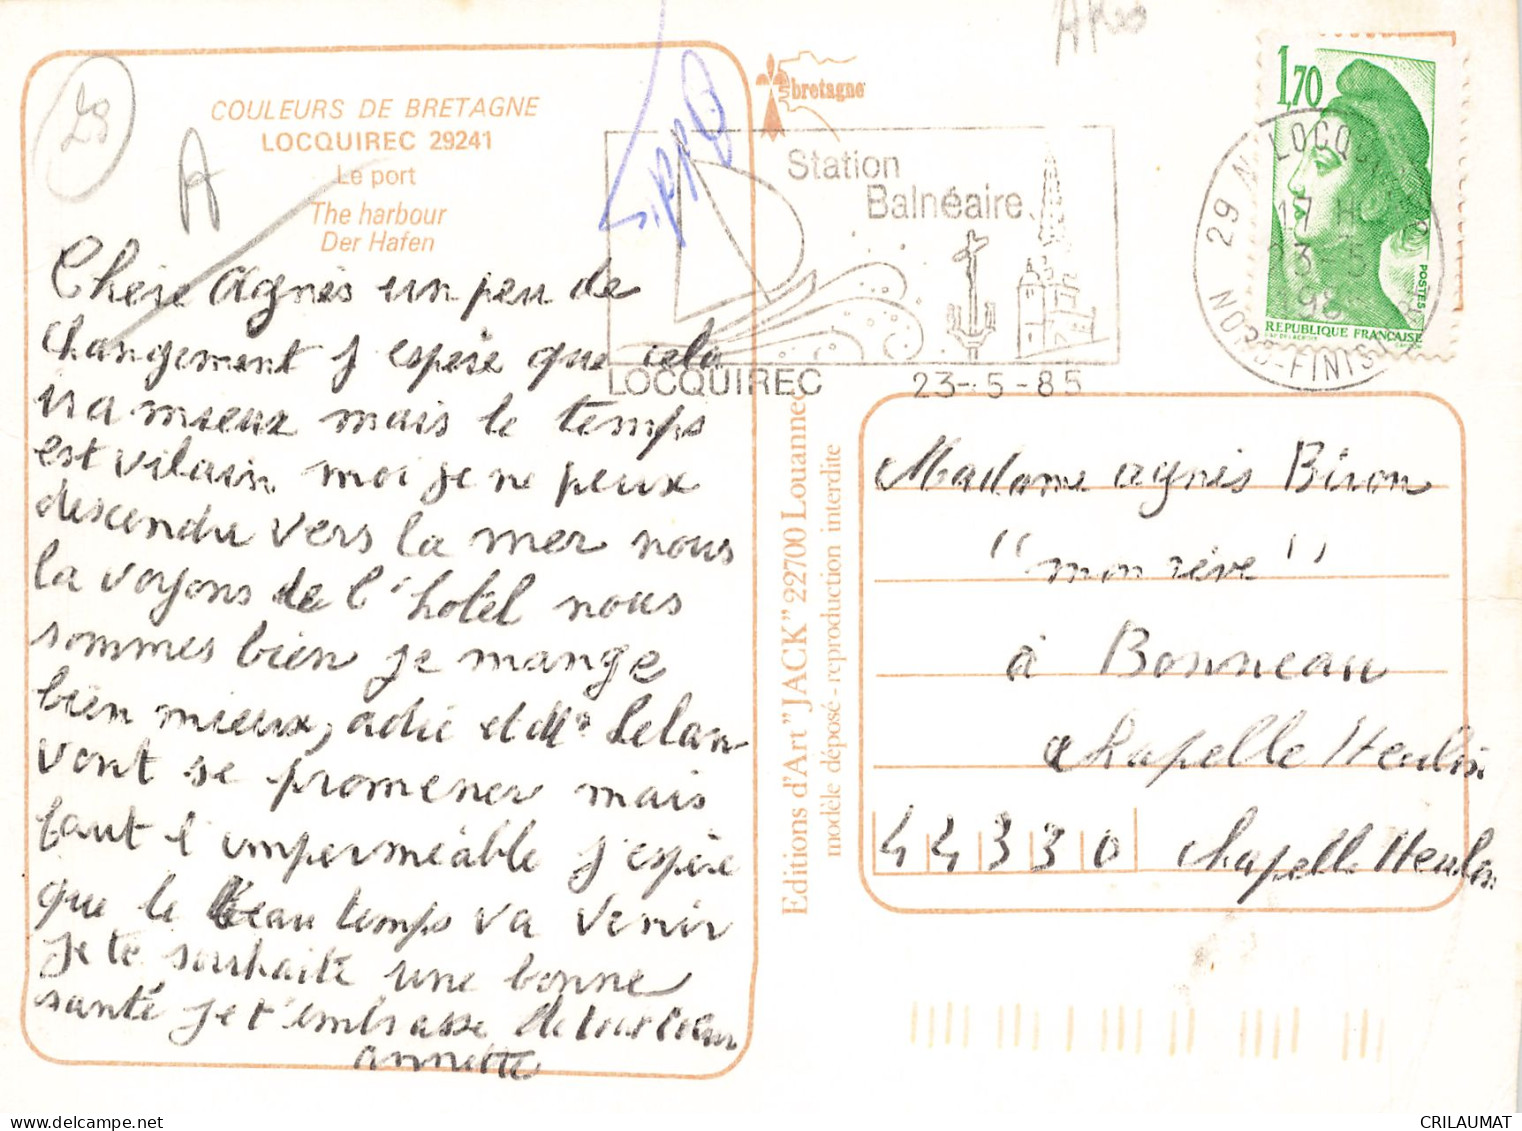 AR20
28
A
SIPPO
COULEURS DE BRETAGNE
LOCQUIREC 29241
Le port
The harbour
Der Hafen
bretagne
Station
Balnéaire
LOCQUIREC 23-5-85
29 N LOCQUIREC
17 H
23-5
198
NORD-FINISTERE
1,70
POSTES
REPUBLIQUE FRANÇAISE
Chère Agnès un peu de
changement j espère que cela
ira mieux mais le temps
est vilain moi je ne peux
descendre vers la mer nous
la voyons de l'hotel nous
sommes bien je mange
bien mieux, adié et Mr Lelan
vont se promener mais
faut l imperméable j'espère
que le beau temps va venir
je te souhaite une bonne
santé je t'embrasse de tout cœur
annette
Editions d'Art "JACK" 22700 Louannec
modèle déposé - reproduction interdite
Madame agnès Biron
"mon rêve"
à Bonneau
Chapelle Heulin
44330 Chapelle Heulin
CRILAUMAT